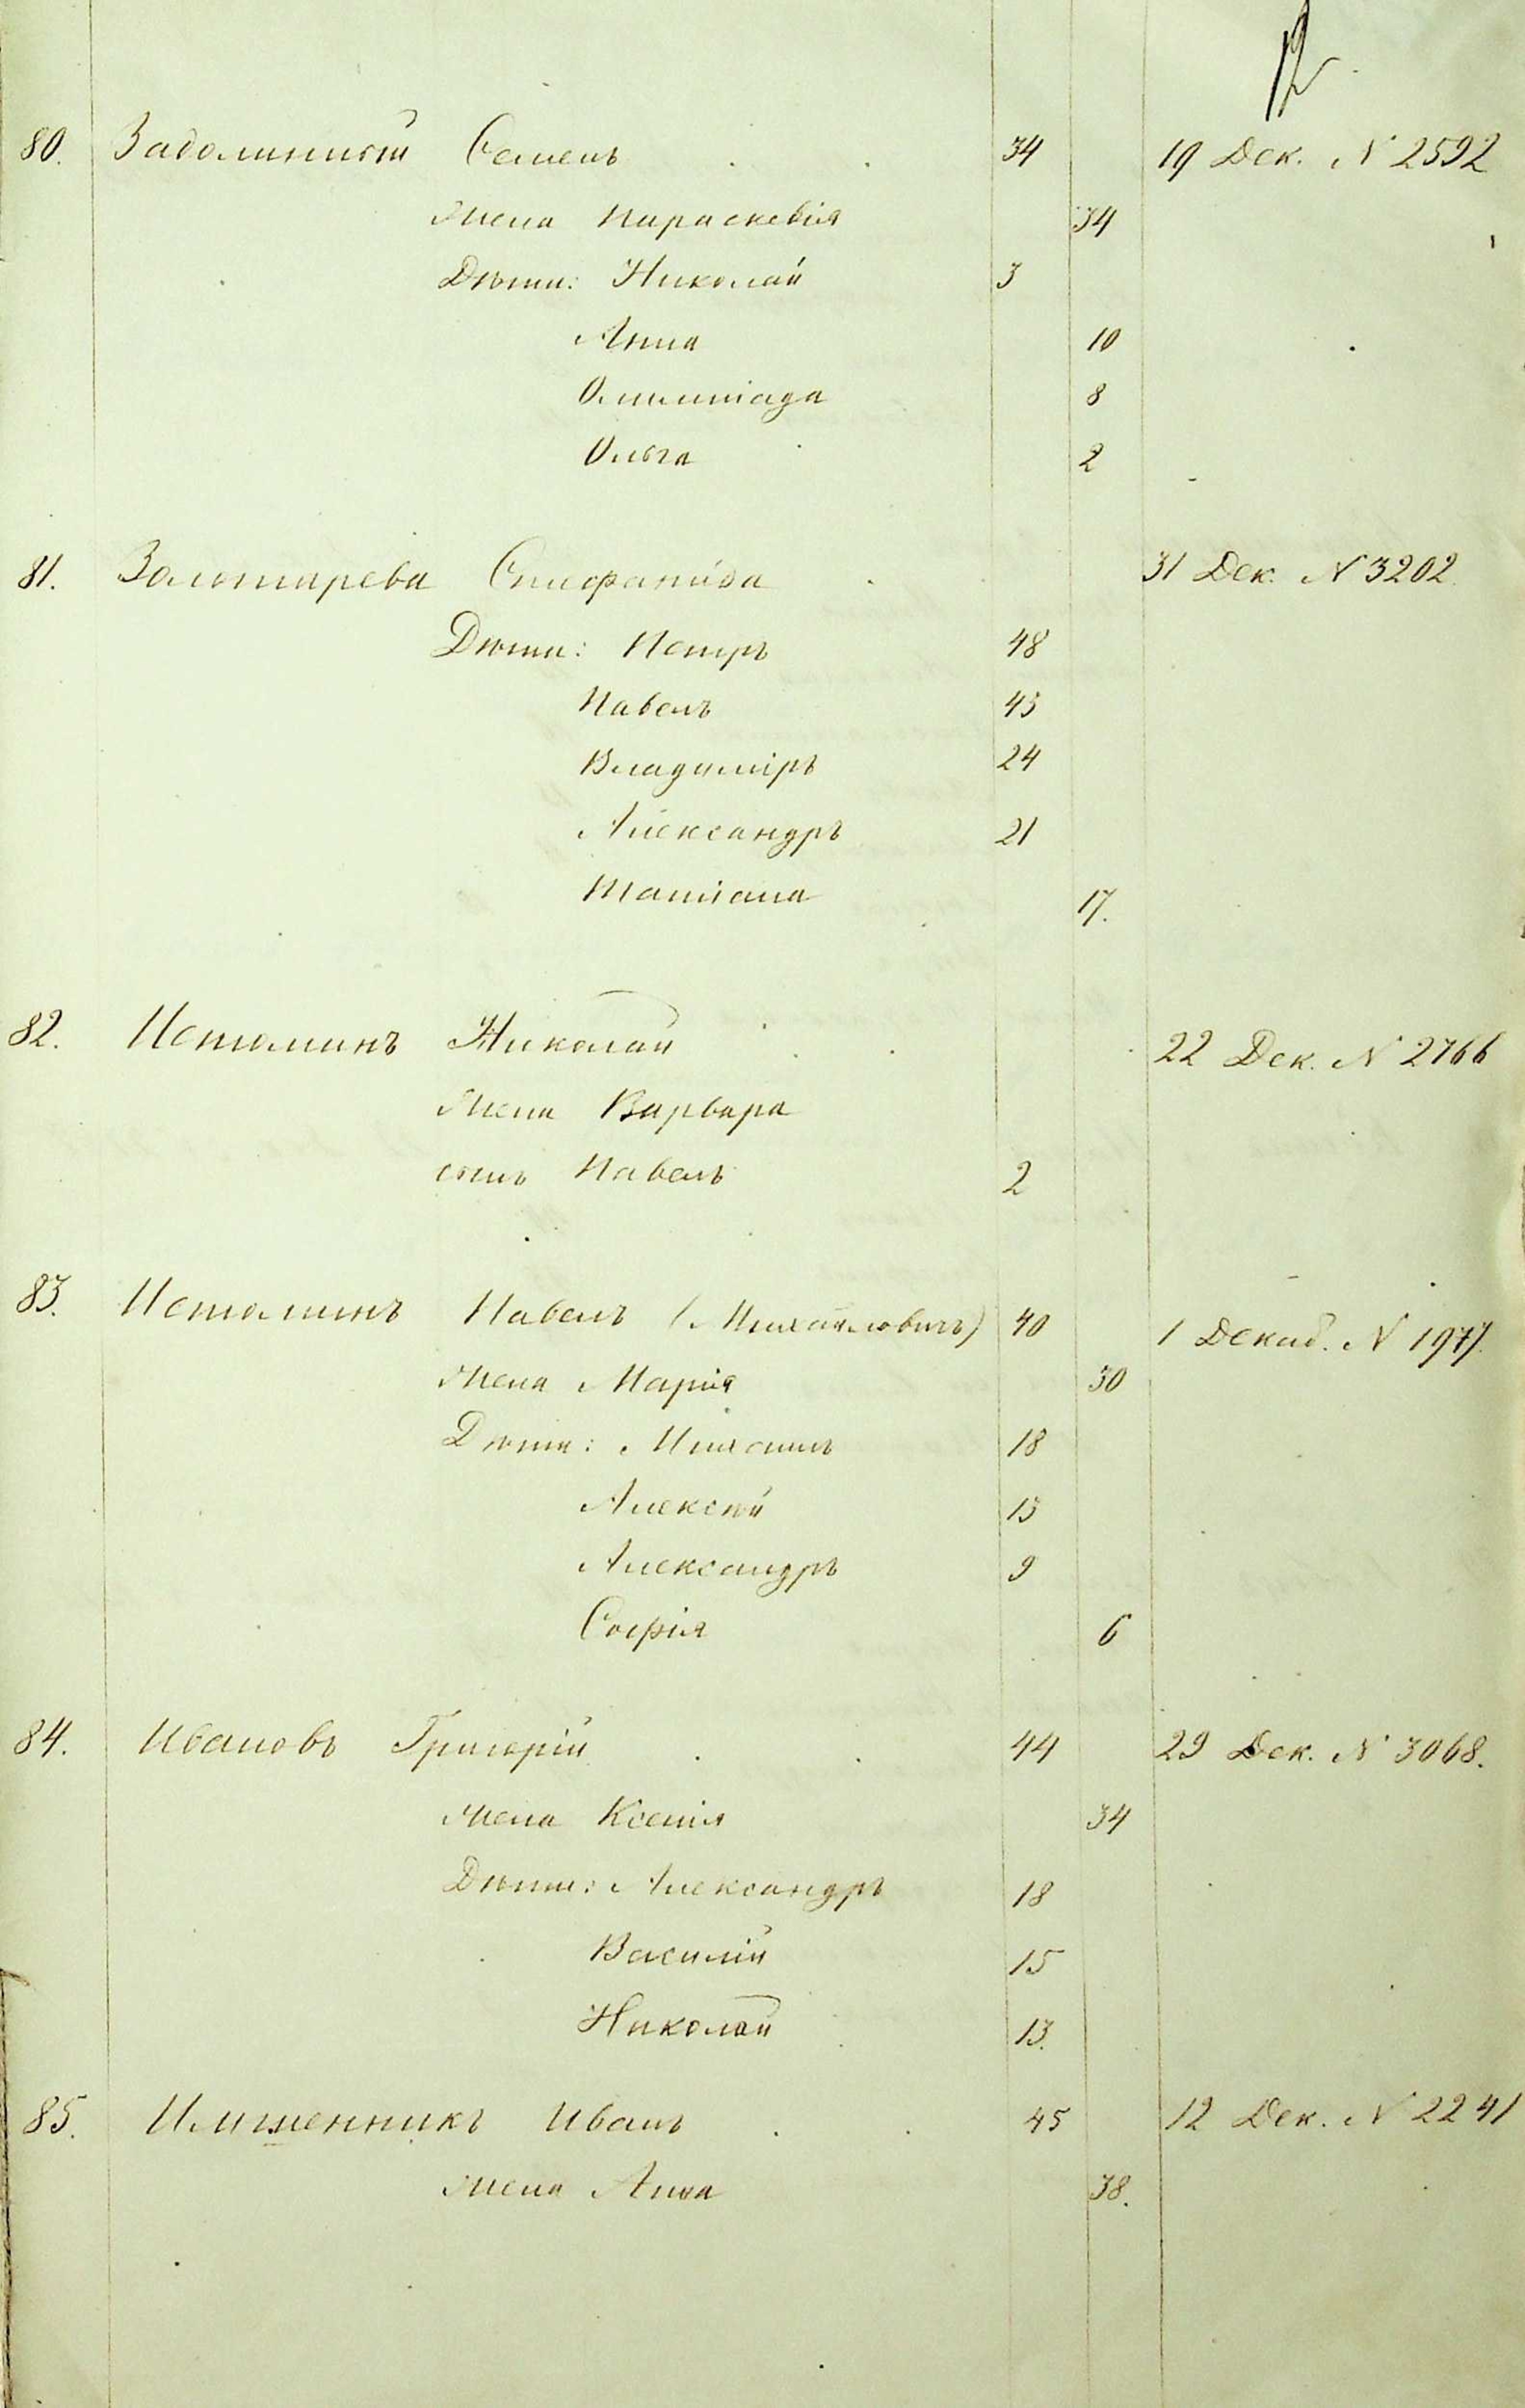 12
80. Задолинный Семенъ 34 19 Дек. N 2592
Жена Параскевія 34
Дѣти: Николай 3
Анна 10
Олимпіада 8
Ольга 2
81. Золотарева Епифанида 31 Дек. N 3202
Дѣти: Петръ 48
Павелъ 43
Владиміръ 24
Александръ 21
Татіана 17.
82. Истоминъ Николай 22 Дек. N 2766
Жена Варвара
сынъ Павелъ 2
83. Истоминъ Павелъ (Михайловичъ) 40 1 Декаб. N 1977.
Жена Марія 30
Дѣти: Михаилъ 18
Алексѣй 13
Александръ 9
Софія 6
84. Ивановъ Григорій 44 29 Дек. N 3068.
Жена Ксенія 34
Дѣти: Александръ 18
Василій 15
Николай 13.
85. Имшенникъ Иванъ 45 12 Дек. N 2241
Жена Анна 38.